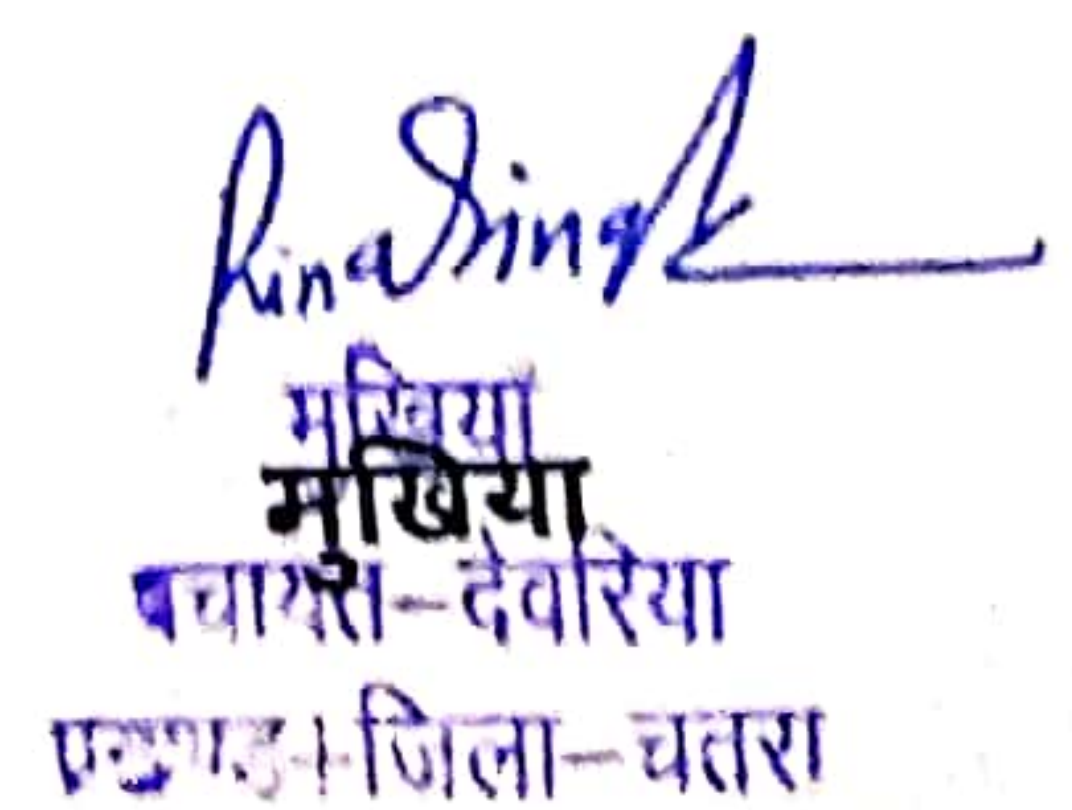 Rina Singh
मुखिया
मुखिया
पंचायत-देवरिया
जिला-चतरा